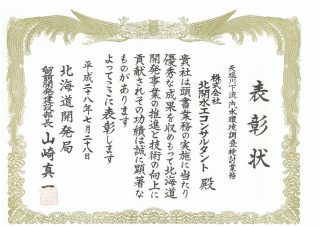 表彰状
天塩川下流 汽水環境調査検討業務
株式会社
北開水工コンサルタント 殿
貴社は頭書業務の実施に当たり
優秀な成果を収めもって北海道
開発事業の推進と技術の向上に
貢献されその功績は誠に顕著な
ものがあります
よってここに表彰します
平成二十八年七月二十八日
北海道開発局
留萌開発建設部長 山崎真一